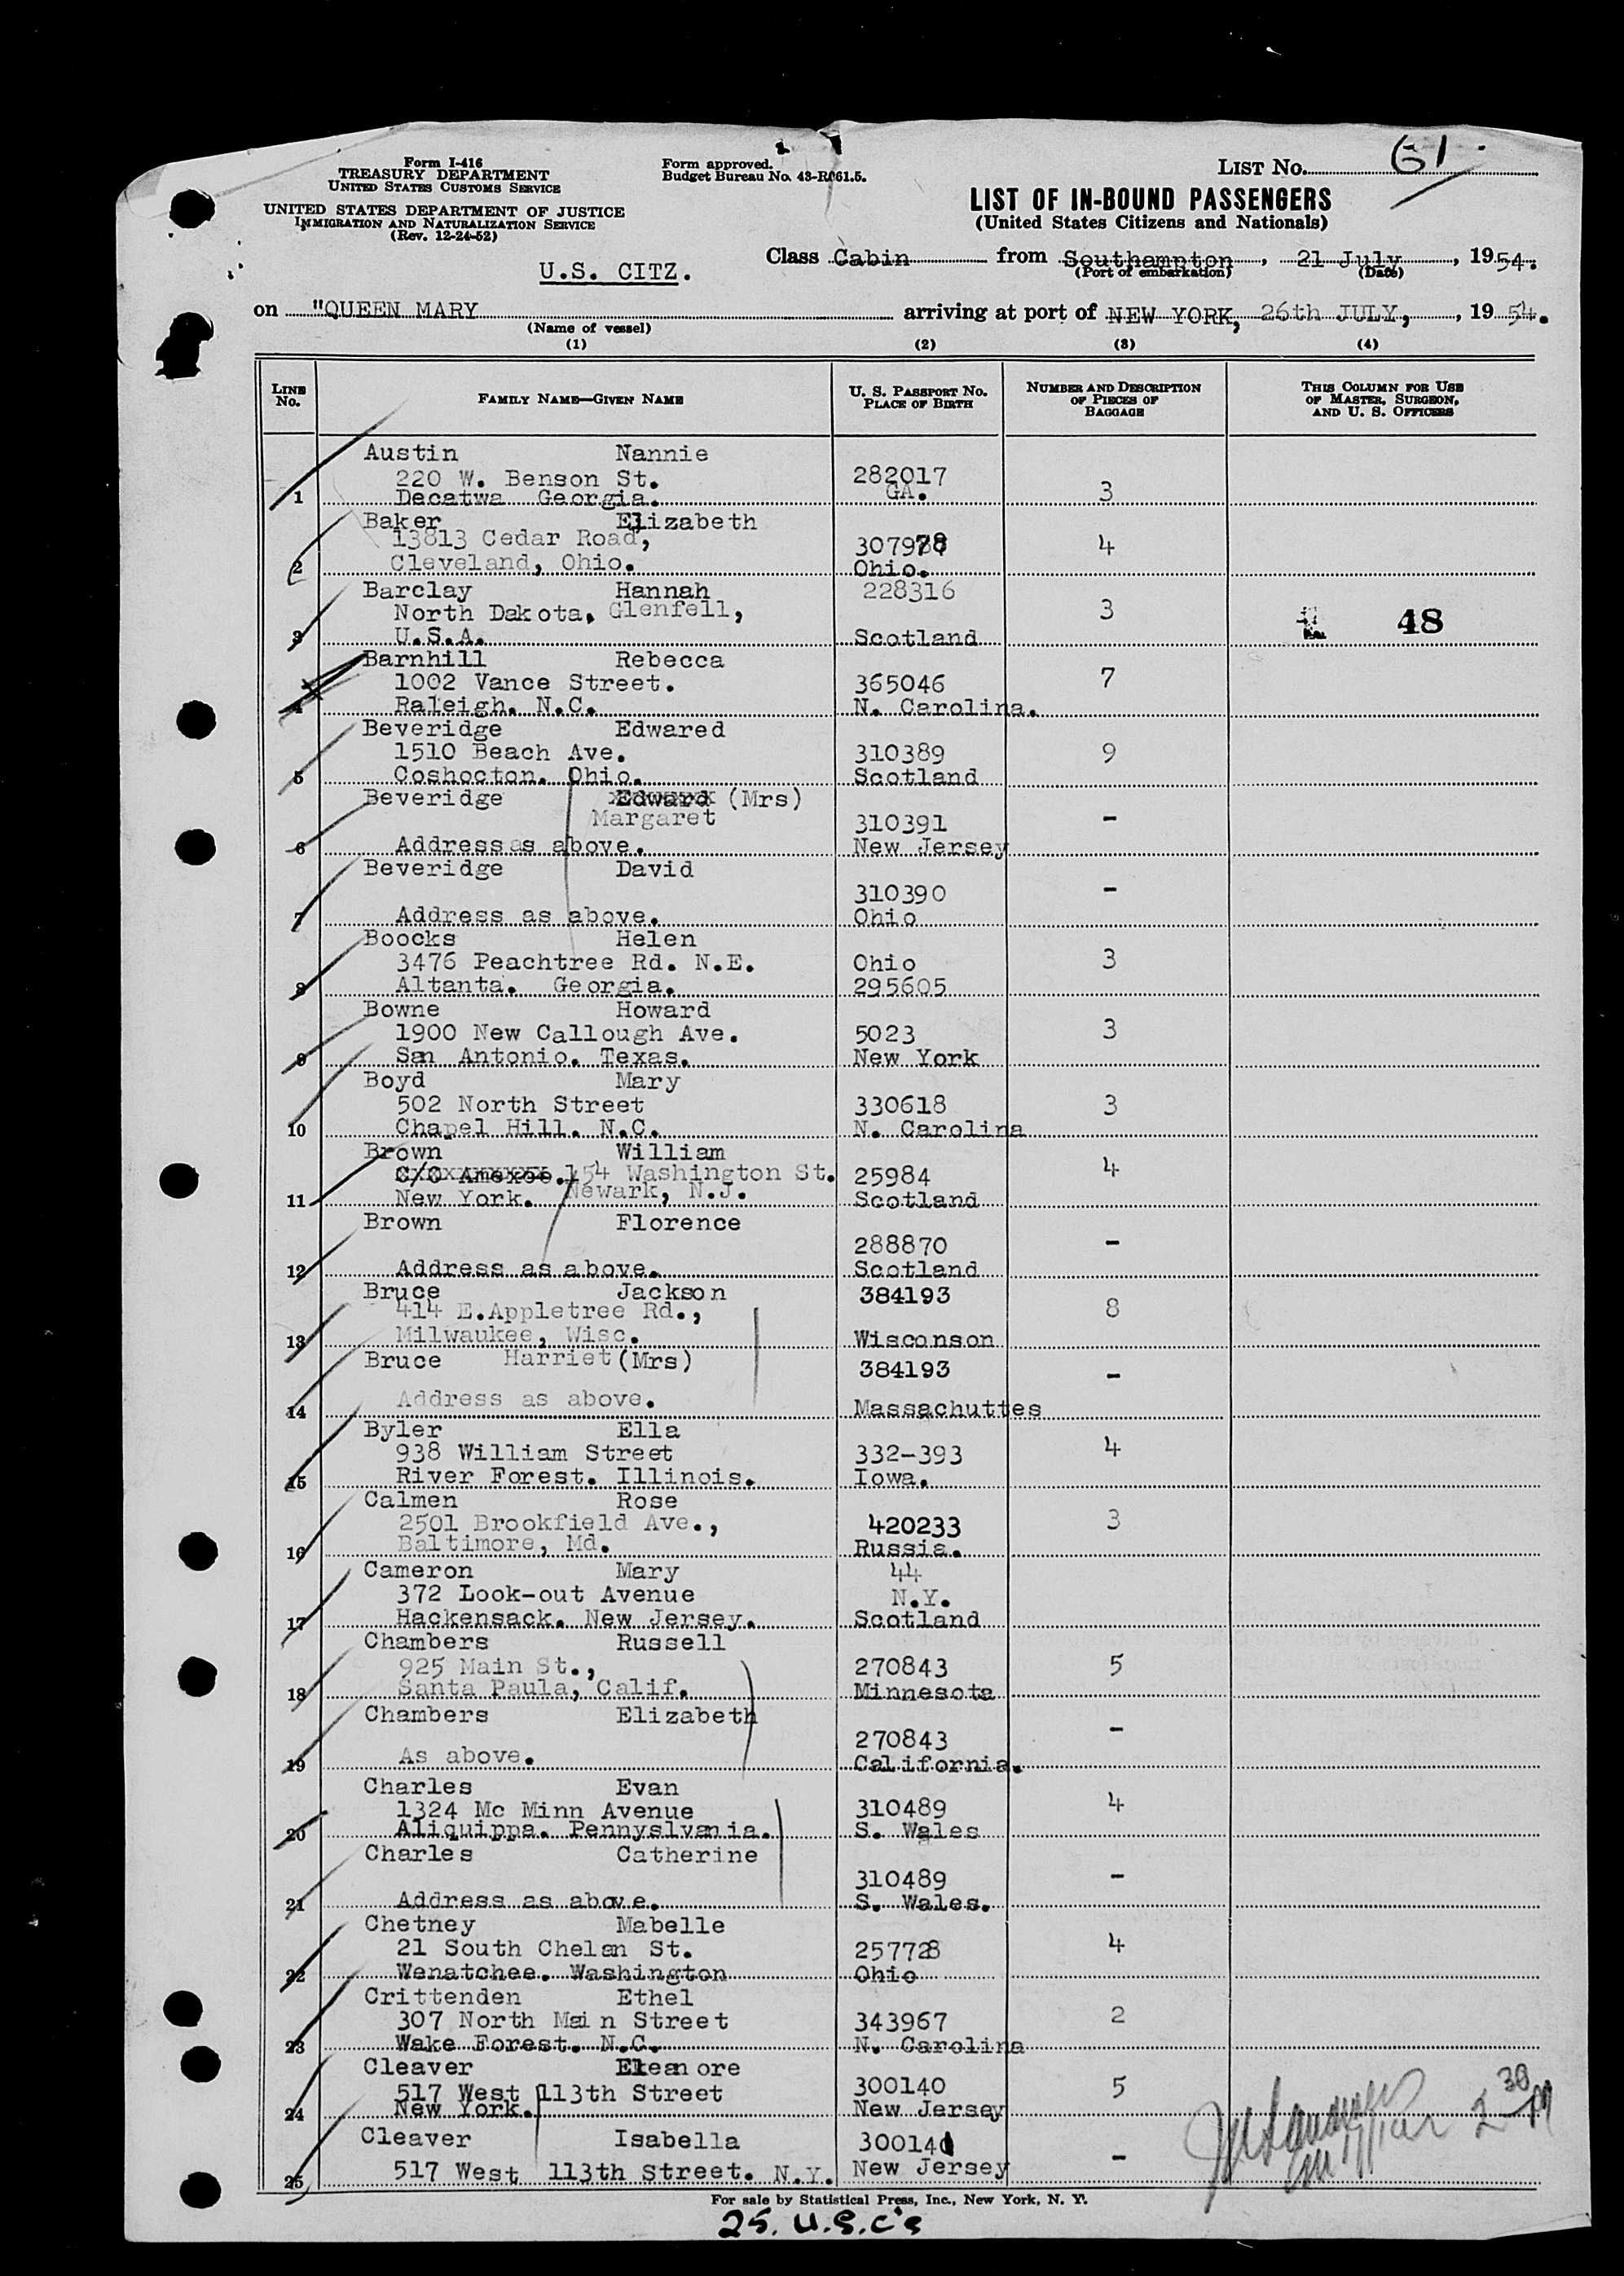 Form I-416
TREASURY DEPARTMENT
UNITED STATES CUSTOMS SERVICE
UNITED STATES DEPARTMENT OF JUSTICE
IMMIGRATION AND NATURALIZATION SERVICE
(Rev. 12-24-52)
Form approved.
Budget Bureau No. 43-R061.5.
LIST No. 61
LIST OF IN-BOUND PASSENGERS
(United States Citizens and Nationals)
U.S. CITZ.
Class Cabin from Southampton, 21 July, 1954.
(Port of embarkation) (Date)
on "QUEEN MARY arriving at port of NEW YORK, 26th JULY, 1954.
(Name of vessel)
(1) (2) (3) (4)
LINE No. FAMILY NAME—GIVEN NAME U. S. PASSPORT NO. PLACE OF BIRTH NUMBER AND DESCRIPTION OF PIECES OF BAGGAGE THIS COLUMN FOR USE OF MASTER, SURGEON, AND U. S. OFFICERS
Austin Nannie
220 W. Benson St. 282017
1 Decatwa Georgia. GA. 3
Baker Elizabeth
13813 Cedar Road, 307978 4
2 Cleveland, Ohio. Ohio.
Barclay Hannah 228316
North Dakota, Glenfell, 3 48
3 U.S.A. Scotland
Barnhill Rebecca
1002 Vance Street. 365046 7
4 Raleigh. N.C. N. Carolina.
Beveridge Edwared
1510 Beach Ave. 310389 9
5 Coshocton. Ohio. Scotland
Beveridge Edward (Mrs)
Margaret 310391 -
6 Address as above. New Jersey
Beveridge David
310390 -
7 Address as above. Ohio
Boocks Helen
3476 Peachtree Rd. N.E. Ohio 3
8 Altanta. Georgia. 295605
Bowne Howard
1900 New Callough Ave. 5023 3
9 San Antonio. Texas. New York
Boyd Mary
502 North Street 330618 3
10 Chapel Hill. N.C. N. Carolina
Brown William
C/O Amexco. 154 Washington St. 25984 4
11 New York. Newark, N.J. Scotland
Brown Florence
288870 -
12 Address as above. Scotland
Bruce Jackson 384193
414 E.Appletree Rd., 8
13 Milwaukee, Wisc. Wisconson
Bruce Harriet (Mrs) 384193 -
14 Address as above. Massachuttes
Byler Ella
938 William Street 332-393 4
15 River Forest. Illinois. Iowa.
Calmen Rose
2501 Brookfield Ave., 420233 3
16 Baltimore, Md. Russia.
Cameron Mary 44
372 Look-out Avenue N.Y.
17 Hackensack. New Jersey. Scotland
Chambers Russell
925 Main St., 270843 5
18 Santa Paula, Calif. Minnesota
Chambers Elizabeth
270843 -
19 As above. California.
Charles Evan
1324 Mc Minn Avenue 310489 4
20 Aliquippa. Pennyslvania. S. Wales
Charles Catherine
310489 -
21 Address as above. S. Wales.
Chetney Mabelle
21 South Chelan St. 257728 4
22 Wenatchee. Washington Ohio
Crittenden Ethel
307 North Main Street 343967 2
23 Wake Forest. N.C. N. Carolina
Cleaver Eleanore
517 West 113th Street 300140 5
24 New York. New Jersey
Cleaver Isabella 300141
25 517 West 113th Street. N.Y. New Jersey -
For sale by Statistical Press, Inc., New York, N. Y.
25. U.S.C's